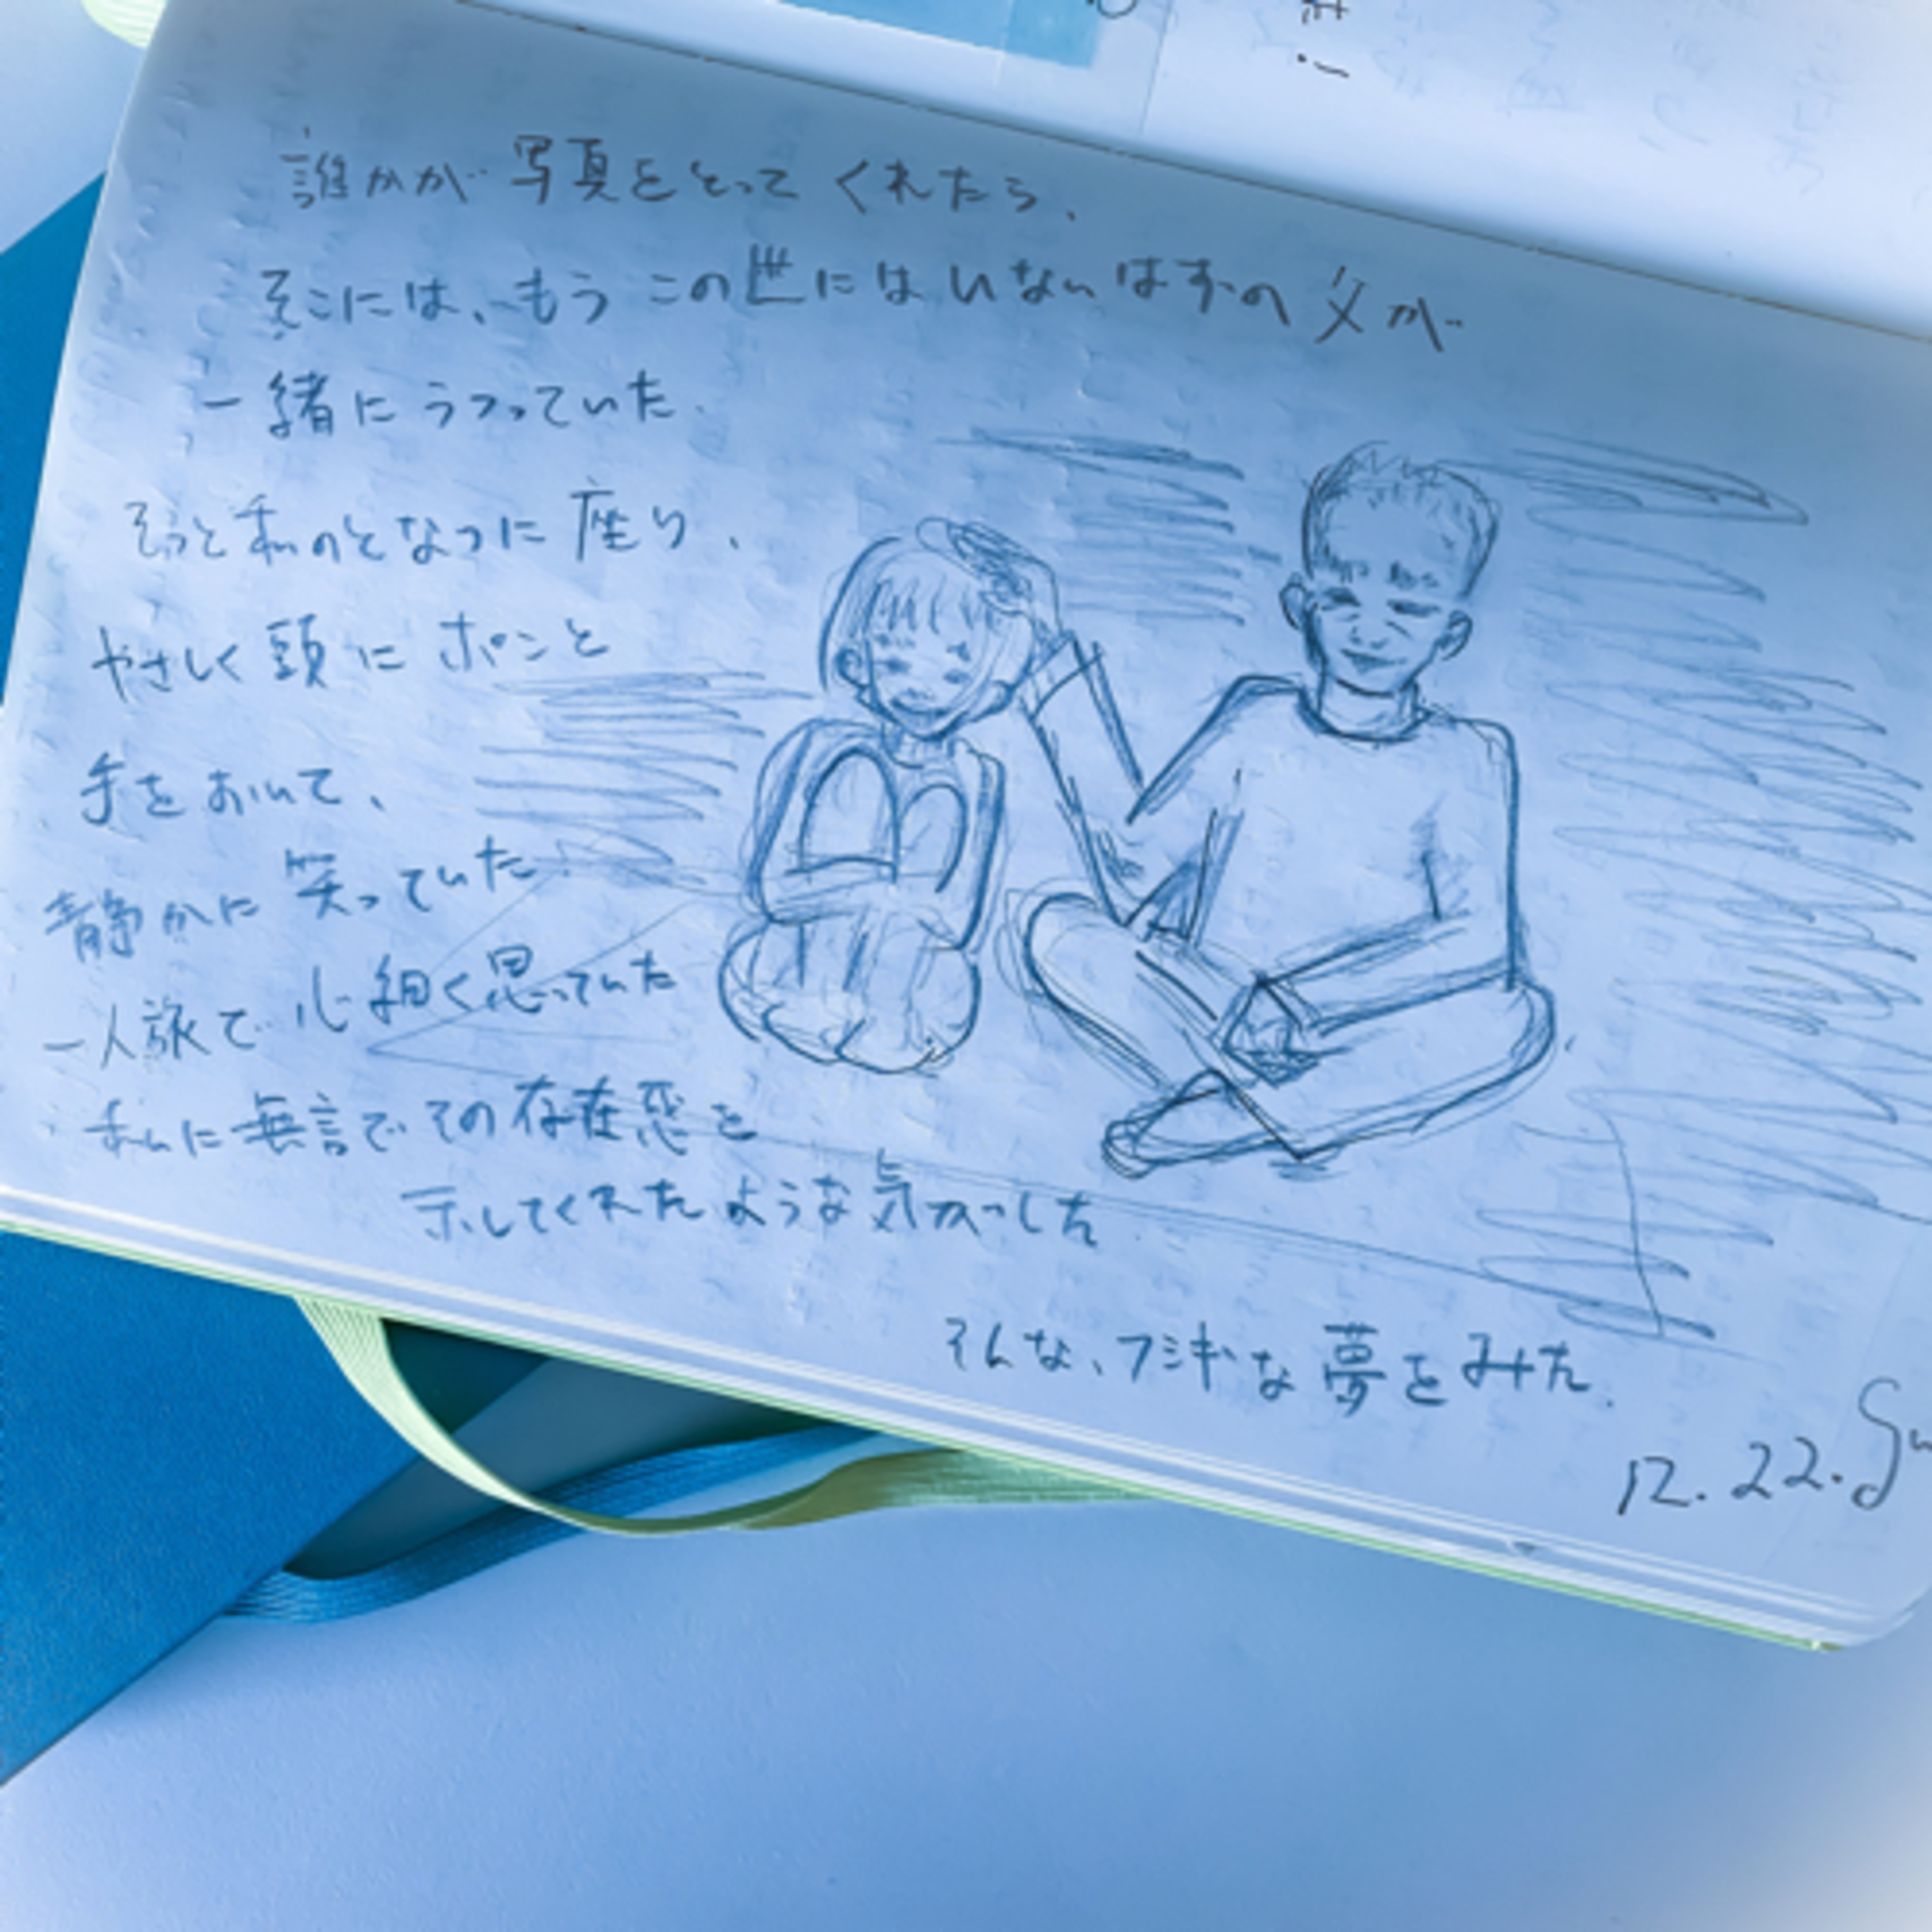 誰かが写真をとってくれたら、
そこには、もうこの世にはいないはずの父が
一緒にうつっていた.
そっと私のとなりに座り、
やさしく頭にポンと
手をおいて、
静かに笑っていた.
一人旅で心細く思っていた
私に無言でその存在感を
示してくれたような気がした
そんな、フシギな夢をみた.
12.22.